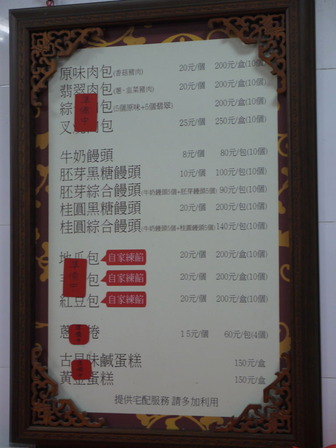 原味肉包(香菇豬肉) 20元/個 200元/盒(10個)
翡翠肉包(蔥、韭菜豬肉) 20元/個 200元/盒(10個)
綜 包(5個原味+5個翡翠) 200元/盒(10個)
叉 包 25元/個 250元/盒(10個)
牛奶饅頭 8元/個 80元/包(10個)
胚芽黑糖饅頭 10元/個 100元/包(10個)
胚芽綜合饅頭(牛奶饅頭5個+胚芽饅頭5個) 90元/包(10個)
桂圓黑糖饅頭 20元/個 200元/包(10個)
桂圓綜合饅頭(牛奶饅頭5個+桂圓饅頭5個) 140元/包(10個)
地瓜包 自家揉餡 20元/個 200元/盒(10個)
包 自家揉餡 20元/個 200元/盒(10個)
紅豆包 自家揉餡 20元/個 200元/盒(10個)
蔥 捲 15元/個 60元/包(4個)
古早味鹹蛋糕 150元/盒
黃金蛋糕 150元/盒
提供宅配服務 請多加利用